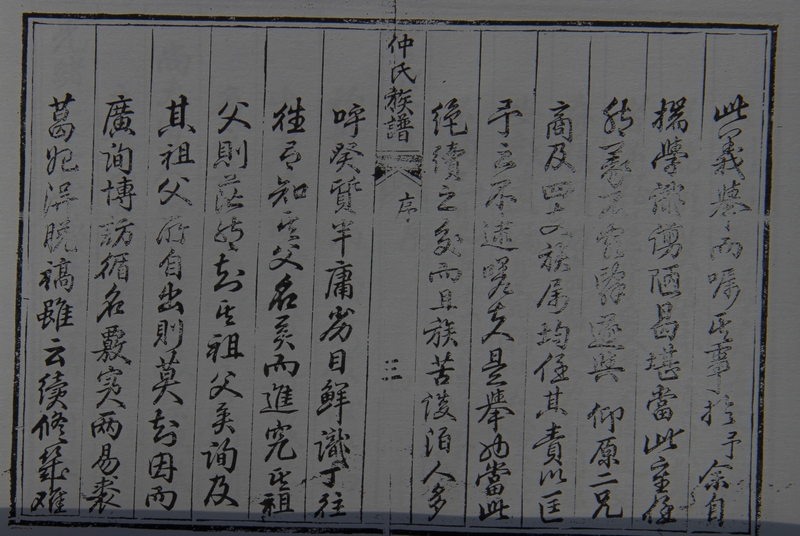 此義舉而囑其事於予余自
揣學識譾陋曷堪當此重任
然義不容辭遂與仰原二兄
商及四五族屬均任其責以匡
予之不逮嗟夫是舉也當此
絕續之交而且族苦淩泊人多
仲氏族譜
序
三
呼癸質半庸劣目鮮識丁往
往有知其父名矣而進究其祖
父則茫然知其祖父矣詢及
其祖父所自出則莫知因而
廣詢博訪循名覈實兩易裘
葛始得脫稿雖云續修葢难